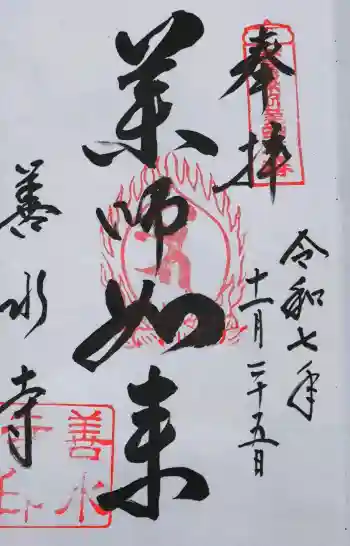 奉拝
令和七年
十一月二十五日
薬師如来
善水寺
善水